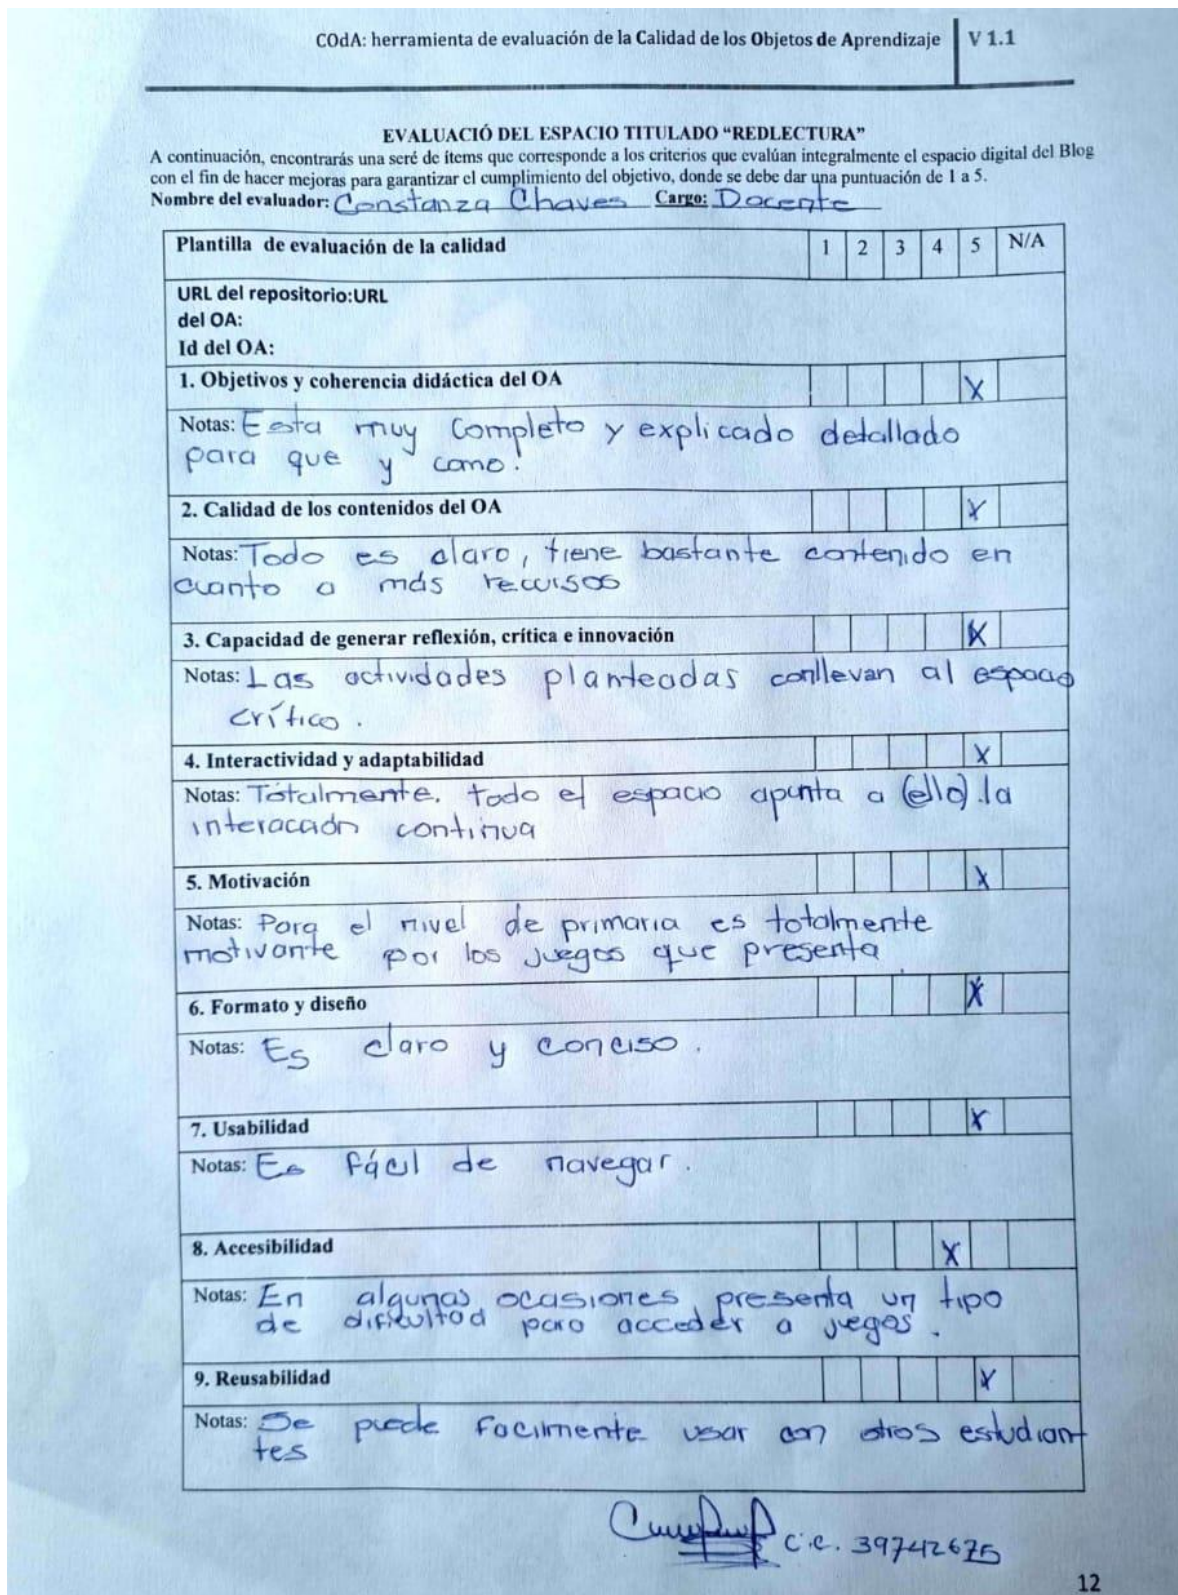 COdA: herramienta de evaluación de la Calidad de los Objetos de Aprendizaje V 1.1
EVALUACIÓ DEL ESPACIO TITULADO “REDLECTURA”
A continuación, encontrarás una seré de ítems que corresponde a los criterios que evalúan integralmente el espacio digital del Blog
con el fin de hacer mejoras para garantizar el cumplimiento del objetivo, donde se debe dar una puntuación de 1 a 5.
Nombre del evaluador: Constanza Chaves Cargo: Docente
Plantilla de evaluación de la calidad 1 2 3 4 5 N/A
URL del repositorio:URL
del OA:
Id del OA:
1. Objetivos y coherencia didáctica del OA X
Notas: Esta muy completo y explicado detallado
para que y como.
2. Calidad de los contenidos del OA X
Notas: Todo es claro, tiene bastante contenido en
cuanto a más recursos
3. Capacidad de generar reflexión, crítica e innovación X
Notas: Las actividades planteadas conllevan al espacio
crítico.
4. Interactividad y adaptabilidad X
Notas: Totalmente. todo el espacio apunta a (ello).la
interacción continua
5. Motivación X
Notas: Para el nivel de primaria es totalmente
motivante por los juegos que presenta
6. Formato y diseño X
Notas: Es claro y conciso.
7. Usabilidad X
Notas: Es fácil de navegar.
8. Accesibilidad X
Notas: En algunas ocasiones presenta un tipo
de dificultad para acceder a juegos.
9. Reusabilidad X
Notas: Se puede facilmente usar con otros estudiant
tes
C.C. 39742675
12